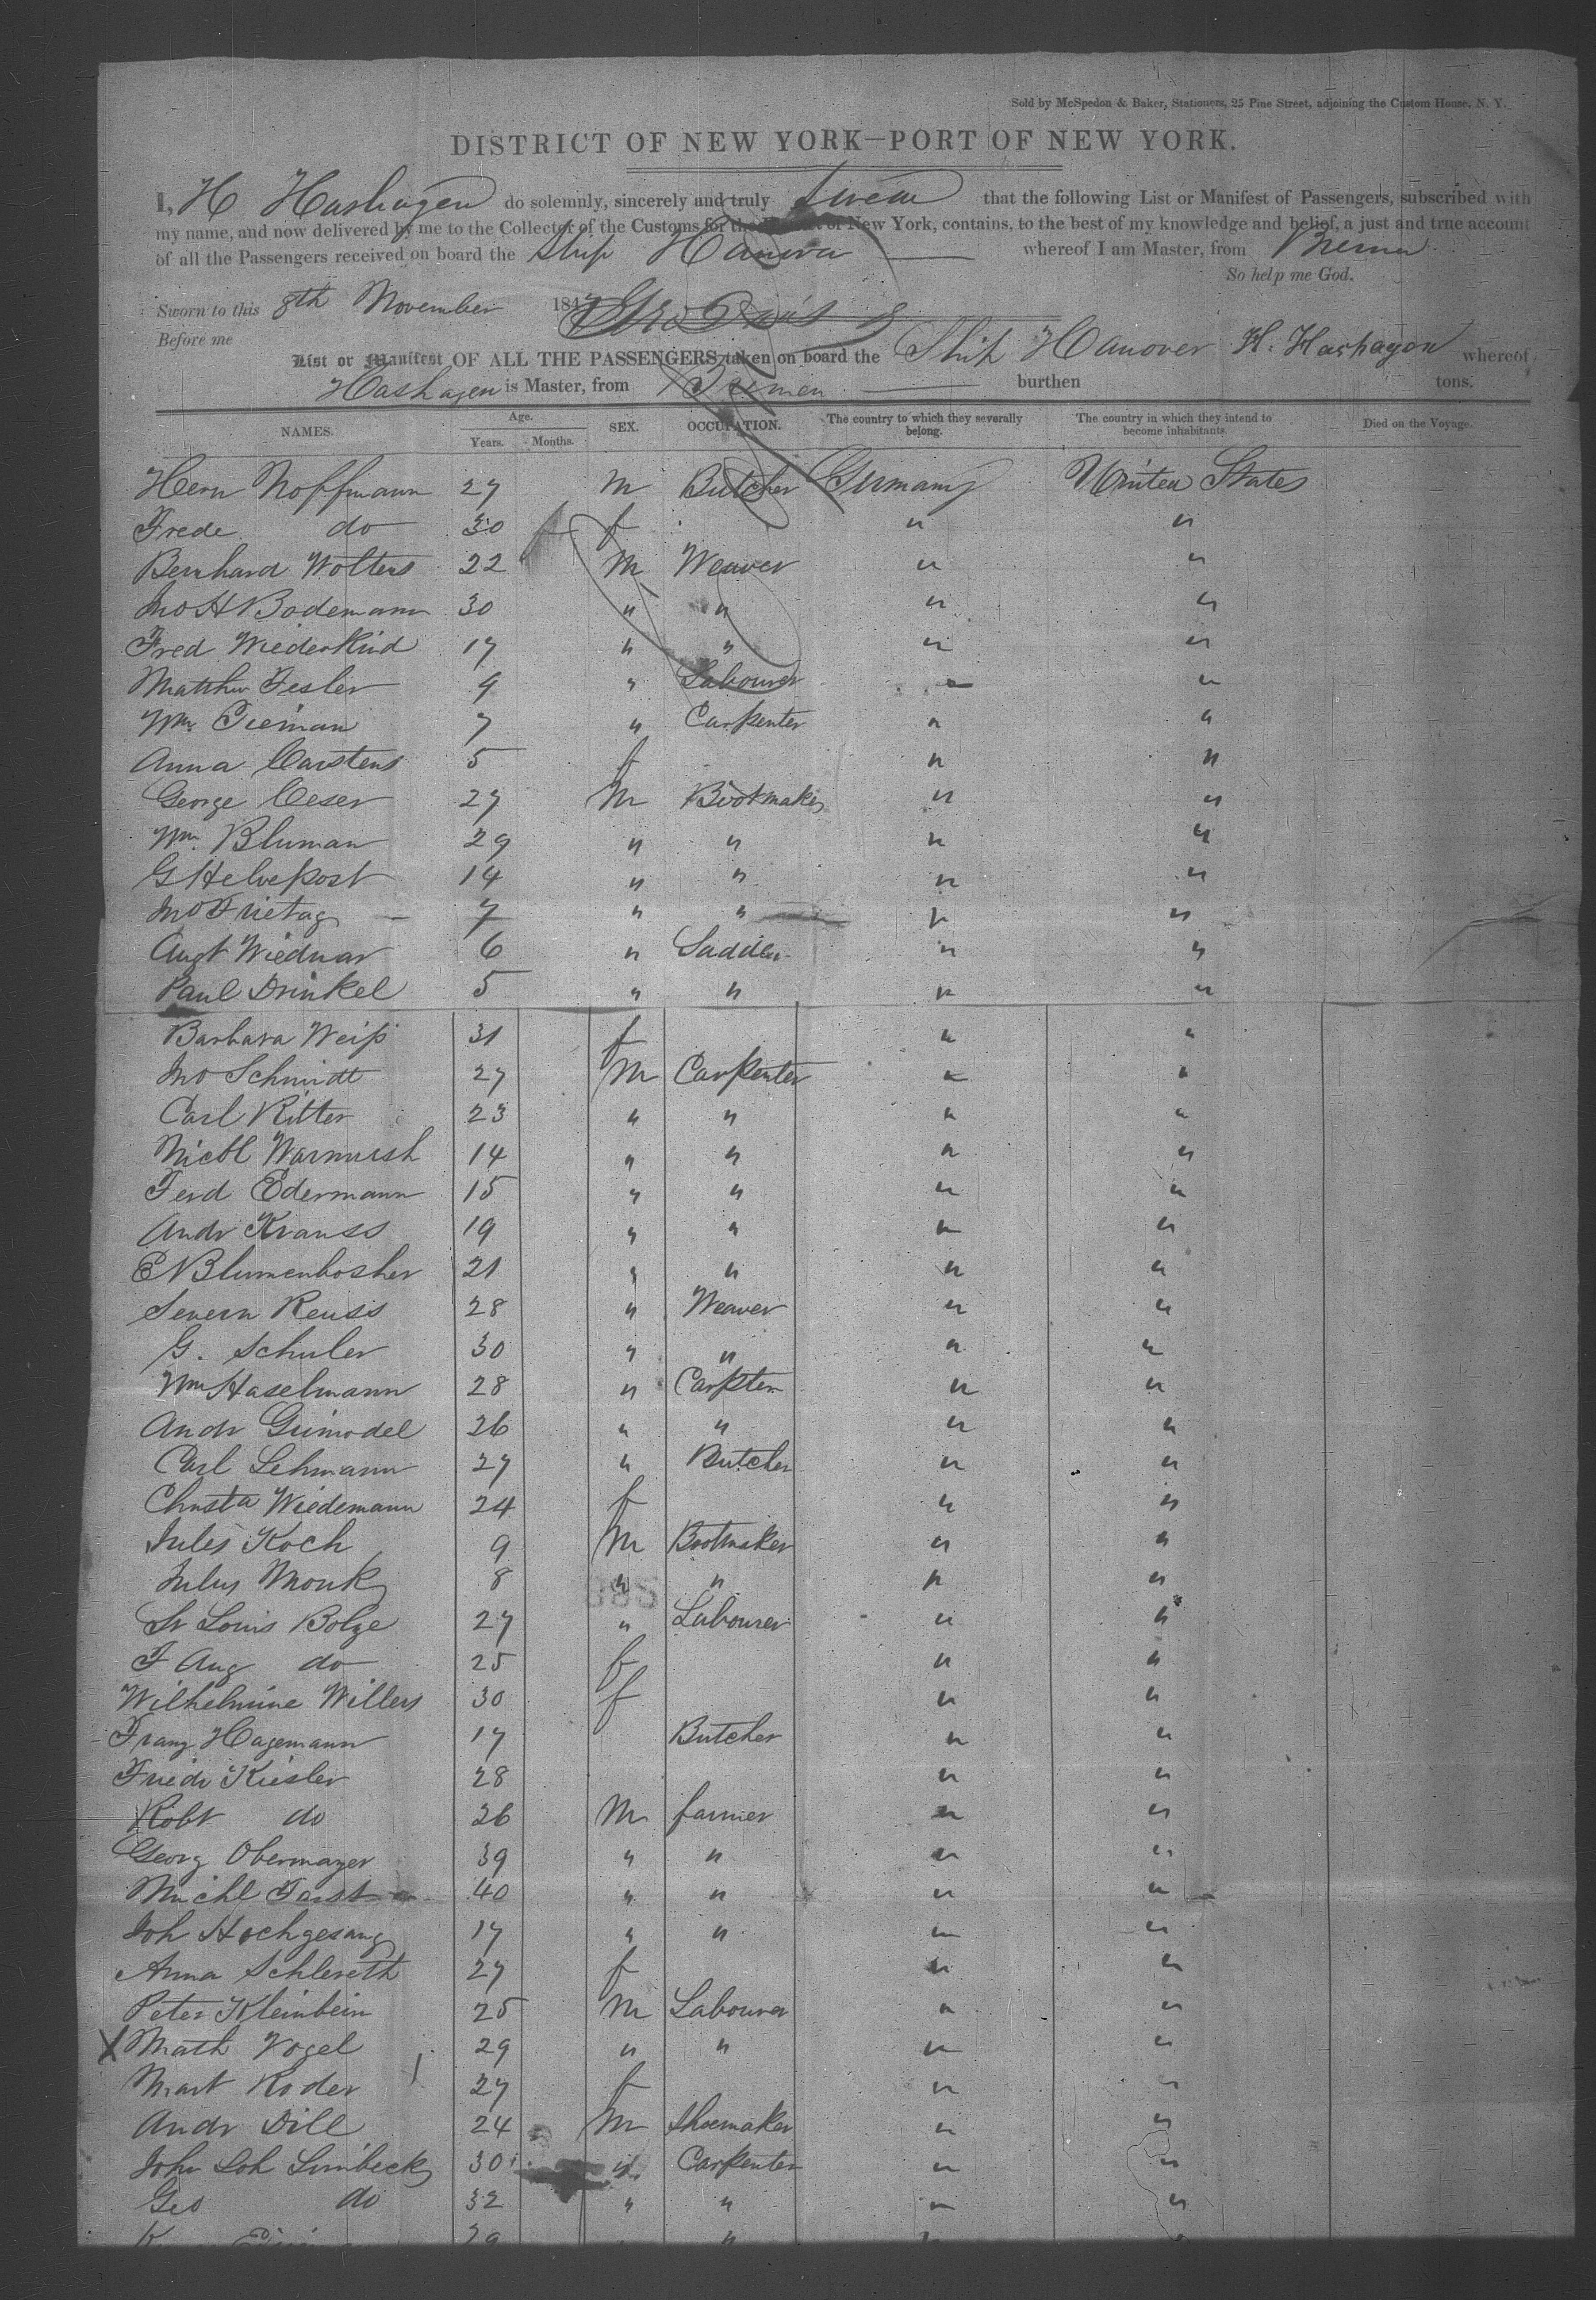 Sold by McSpedon & Baker, Stationers, 25 Pine Street, adjoining the Custom House, N. Y.
DISTRICT OF NEW YORK—PORT OF NEW YORK.
I, H Hashagen do solemnly, sincerely and truly swear that the following List or Manifest of Passengers, subscribed with
my name, and now delivered by me to the Collector of the Customs for the of New York, contains, to the best of my knowledge and belief, a just and true account
of all the Passengers received on board the Ship Hanover whereof I am Master, from Bremen
So help me God.
Sworn to this 8th November 184
Before me
List or Manifest OF ALL THE PASSENGERS taken on board the Ship Hanover H. Hashagen whereof
Hashagen is Master, from Bremen burthen tons.
NAMES. Age. Years. Months. SEX. OCCUPATION. The country to which they severally belong. The country in which they intend to become inhabitants. Died on the Voyage.
Herm Hoffmann 27 M Butcher Germany United States
Frede do 30 f " "
Bernhard Wolters 22 M Weaver " "
Jno H Bodemann 30 " " " "
Fred Wiederkind 17 " " " "
Matthw Fesler 9 " Labourer " "
Wm. Tieman 7 " Carpenter " "
Anna Carstens 5 f " "
George Ceser 27 M Bootmaker " "
Wm. Bluman 29 " " " "
G Helvepost 14 " " " "
Jno Frietag 7 " " " "
Augt Wiedmar 6 " Saddler " "
Paul Drinkel 5 " " " "
Barbara Weiß 31 f " "
Jno Schmidt 27 M Carpenter " "
Carl Ritter 23 " " " "
Nicol Warmuth 14 " " " "
Ferd Edermann 15 " " " "
Andr Krauss 19 " " " "
E N Blumenbosher 21 " " " "
Severn Reuss 28 " Weaver " "
G. Schuler 30 " " " "
Wm Haselmann 28 " Carpten " "
Andr Grimodel 26 " " " "
Carl Lehmann 27 " Butcher " "
Christa Wiedemann 24 f " "
Jules Koch 9 M Bootmaker " "
Julius Monk 8 " " " "
Louis Bolze 27 " Labourer " "
F Aug do 25 f " "
Wilhelmine Willers 30 f " "
Franz Hagemann 17 Butcher " "
Friedr Kiesler 28 " "
Robt do 26 M farmer " "
Georg Obermayer 39 " " " "
Michl Faust 40 " " " "
Joh Hochgesang 17 " " " "
Anna Schlereth 27 f " "
Peter Kleinbein 25 M Labourer " "
X Math Vogel 29 " " " "
Mart Roder 27 f " "
Andr Dill 24 M Shoemaker " "
John Loh Limbeck 30 " Carpenter " "
Geo do 32 " " " "
29 " " "